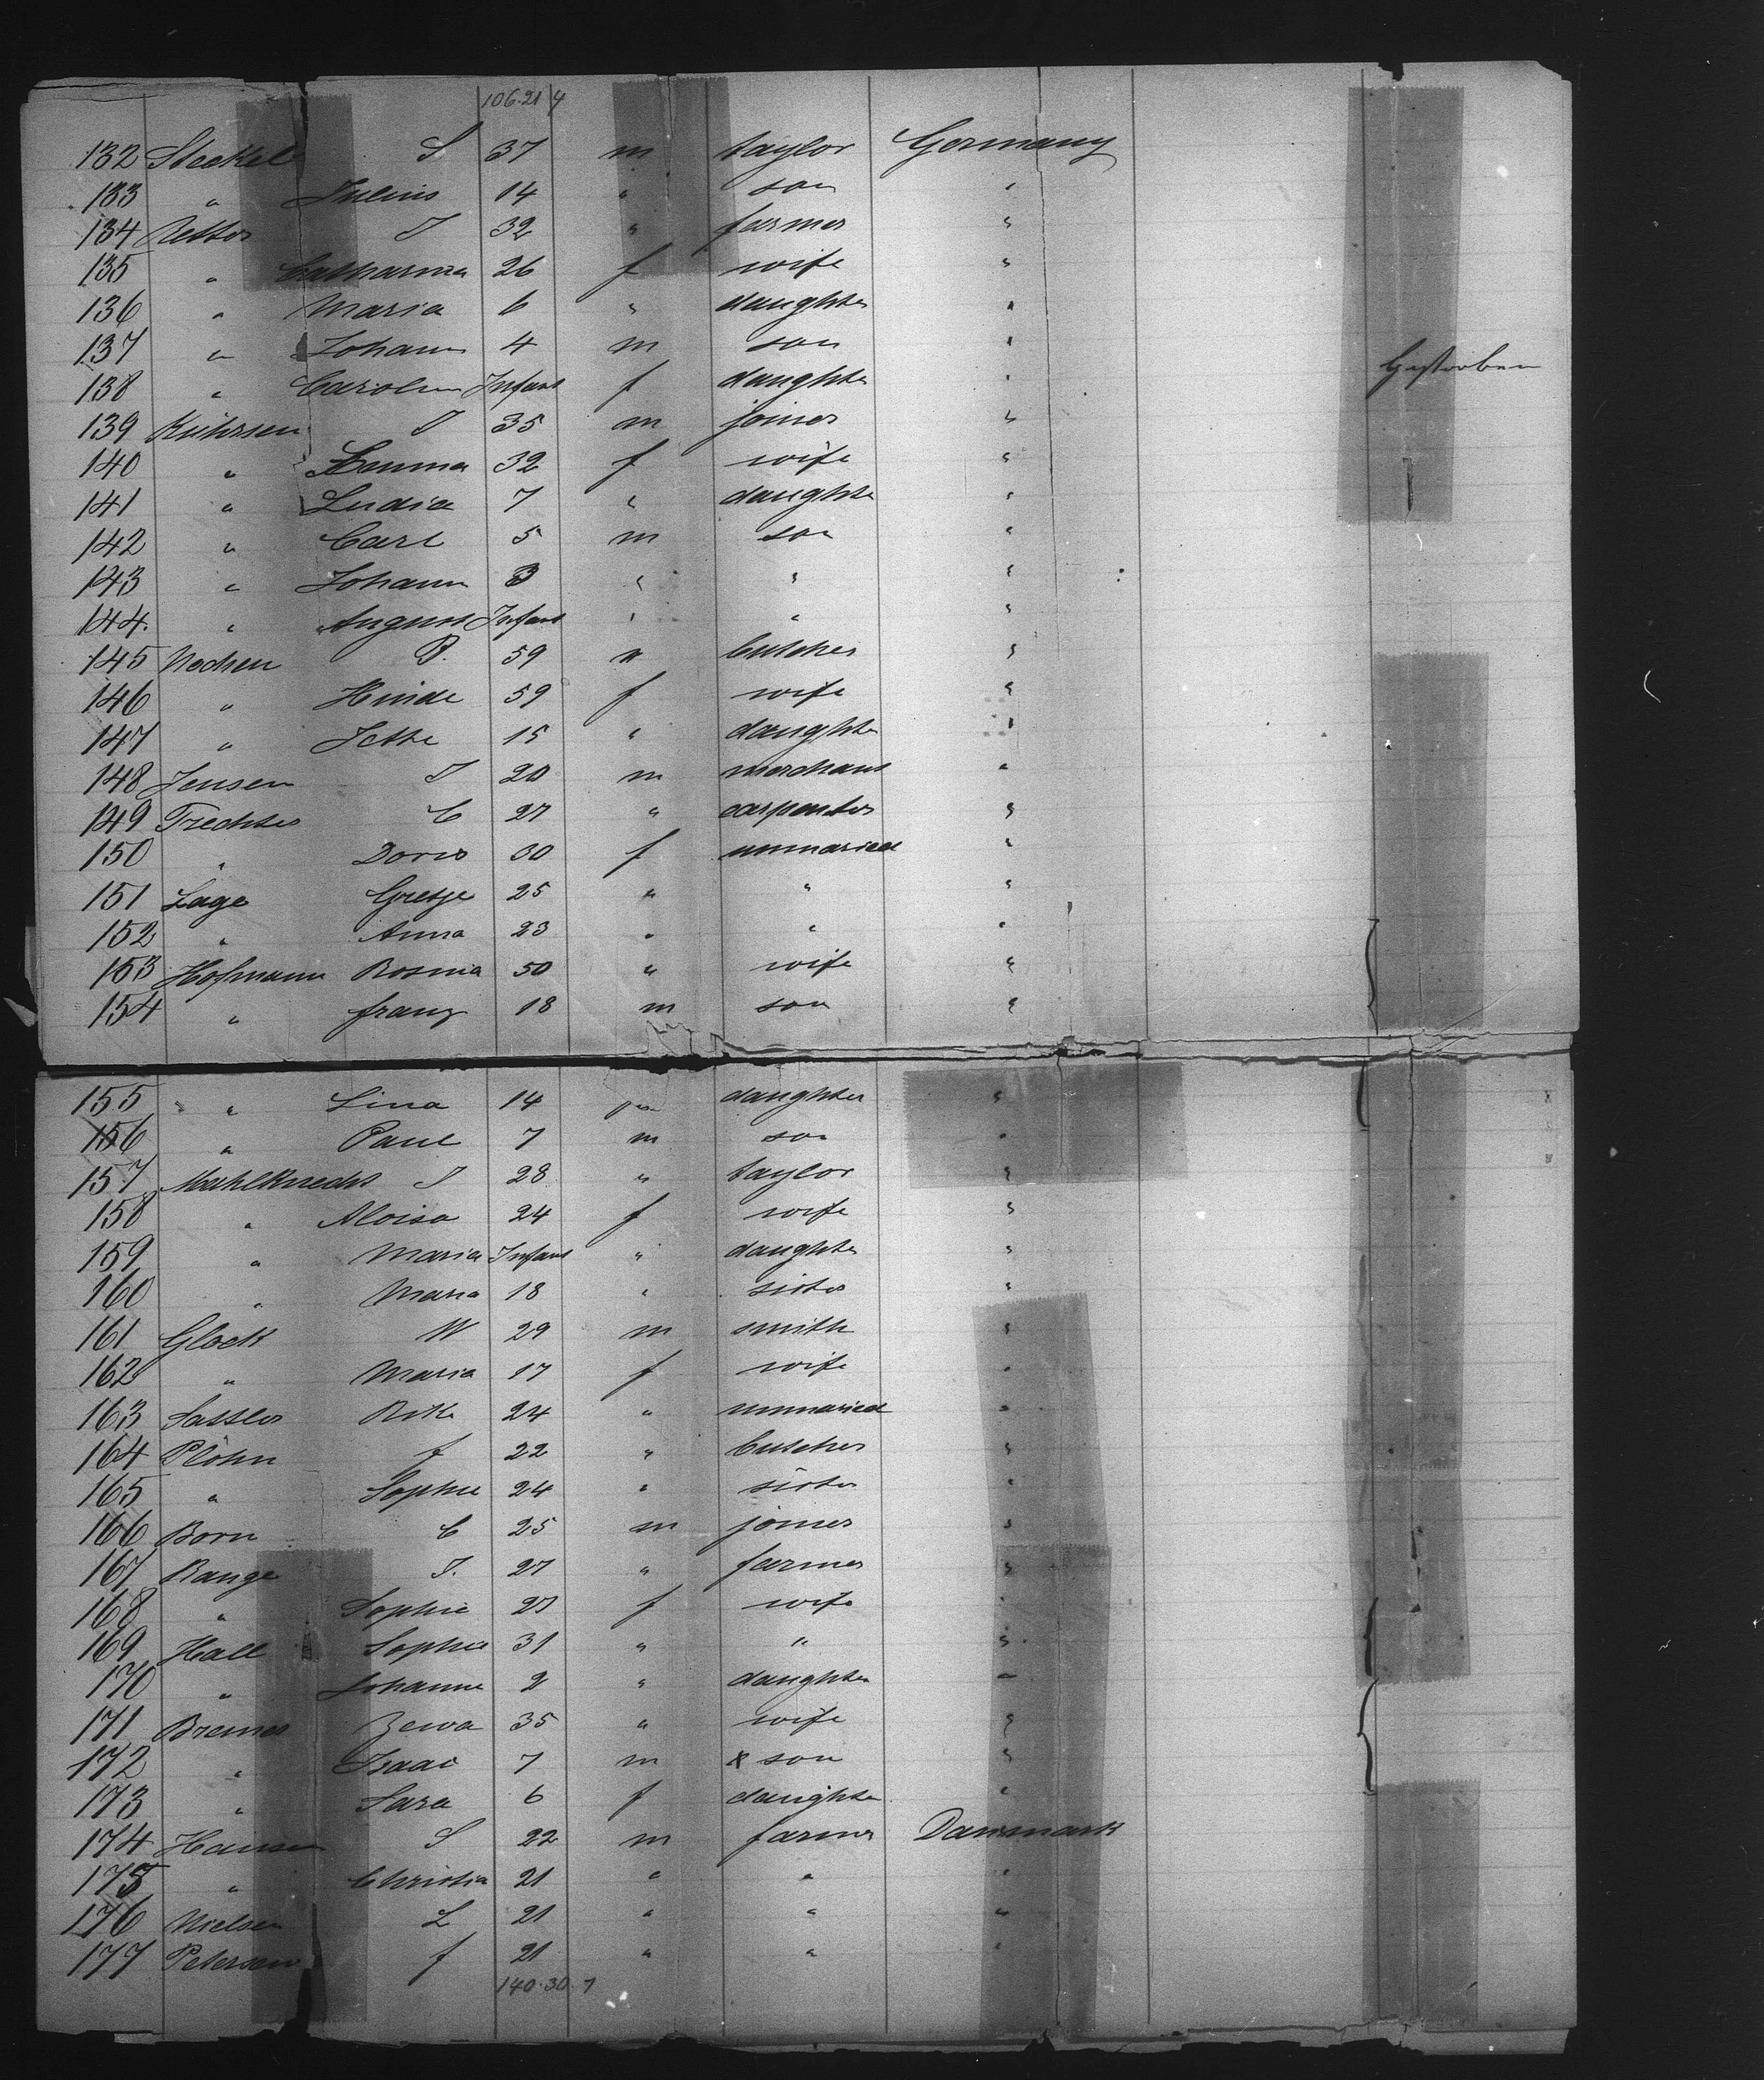 106.21 4
132 Stockel S 37 m taylor Germany
133 " Julius 14 " son "
134 Retter J 32 " farmer "
135 " Catharina 26 f wife "
136 " Maria 6 " daughter "
137 " Johann 4 m son "
138 " Carolin Infant f daughter " Gestorben
139 Kührsen J 35 m joiner "
140 " 32 f wife "
141 " Ludia 7 " daughter "
142 " Carl 5 m son "
143 " Johann 3 " " "
144. " August Infant " " "
145 Nochen B. 59 " butcher "
146 " Hinde 59 f wife "
147 " Jette 15 " daughter "
148 Jensen J 20 m merchant "
149 Trechter C 27 " carpenter "
150 " Doris 30 f unmaried "
151 Lage Gretje 25 " " "
152 " Anna 23 " " "
153 Hofmann Rosina 50 " wife "
154 " franz 18 m son "
155 " Lina 14 daughter "
156 " Paul 7 m son "
157 Mahlknecht J 28 " taylor "
158 " Aloisa 24 f wife "
159 " Maria Infant " daughter "
160 " Maria 18 " sister "
161 Glock W 29 m smith "
162 " Maria 17 f wife "
163 Sassler Rike 24 " unmaried "
164 Plöhn f 22 " butcher "
165 " Sophie 24 " sister "
166 Born C 25 m joiner "
167 Range J. 27 " farmer "
168 " Sophie 27 f wife "
169 Hall Sophie 31 " " "
170 " Johanne 2 " daughter "
171 Bremer Zewa 35 " wife "
172 " Isaac 7 m son "
173 " Sara 6 f daughter "
174 Hansen S 22 m farmer Danmark
175 " Christia 21 " " "
176 Nielsen L 21 " " "
177 Petersen f 21 " " "
140.30.7